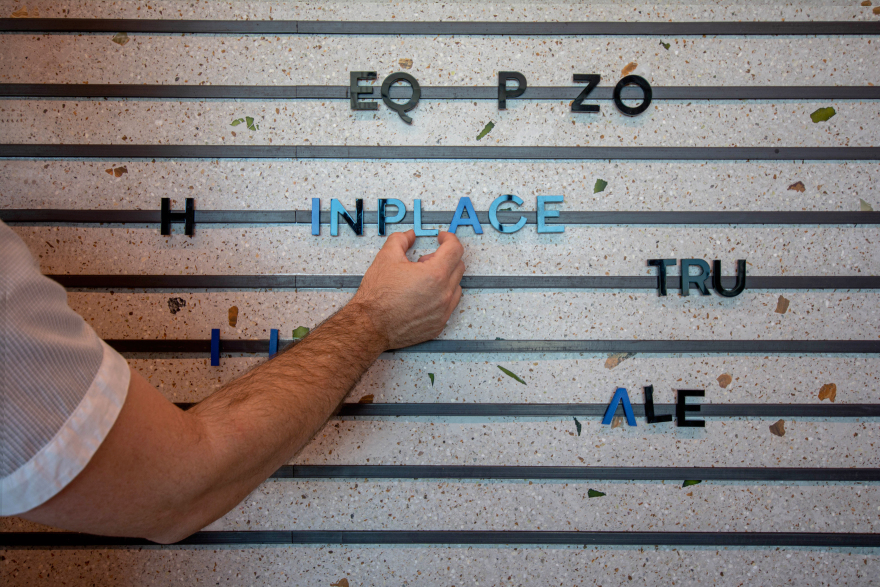 EQ P ZO
H INPLACE
TRU
I I
ALE